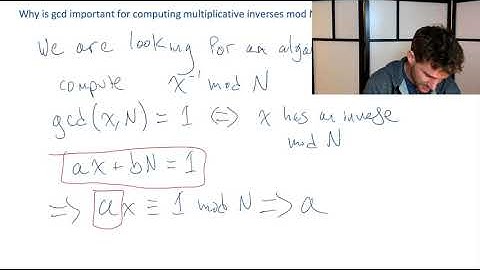 Why is gcd important for computing multiplicative inverses mod N
We are looking for an
compute x⁻¹ mod N
gcd(x, N) = 1 ⟺ x has an inverse
mod N
ax + bN = 1
⟹ ax ≡ 1 mod N ⟹ a